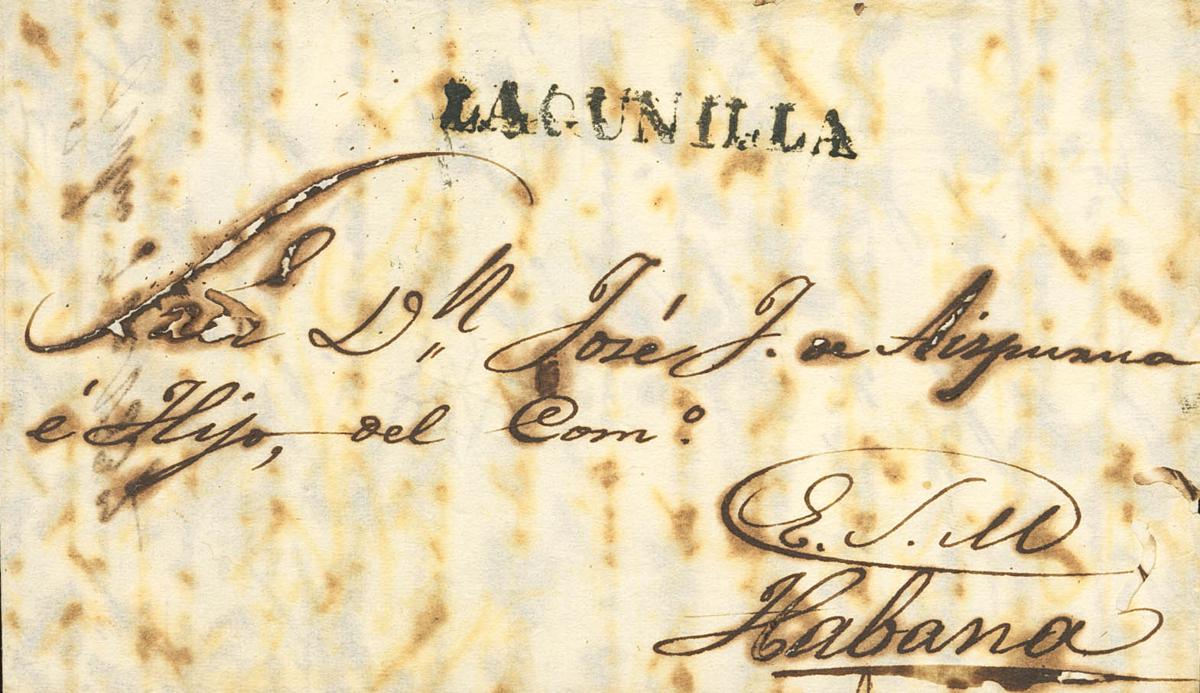 LAGUNILLA
D.ⁿ José J. de Aizpurua
é Hijo, del Com.º
E. S. M
Habana